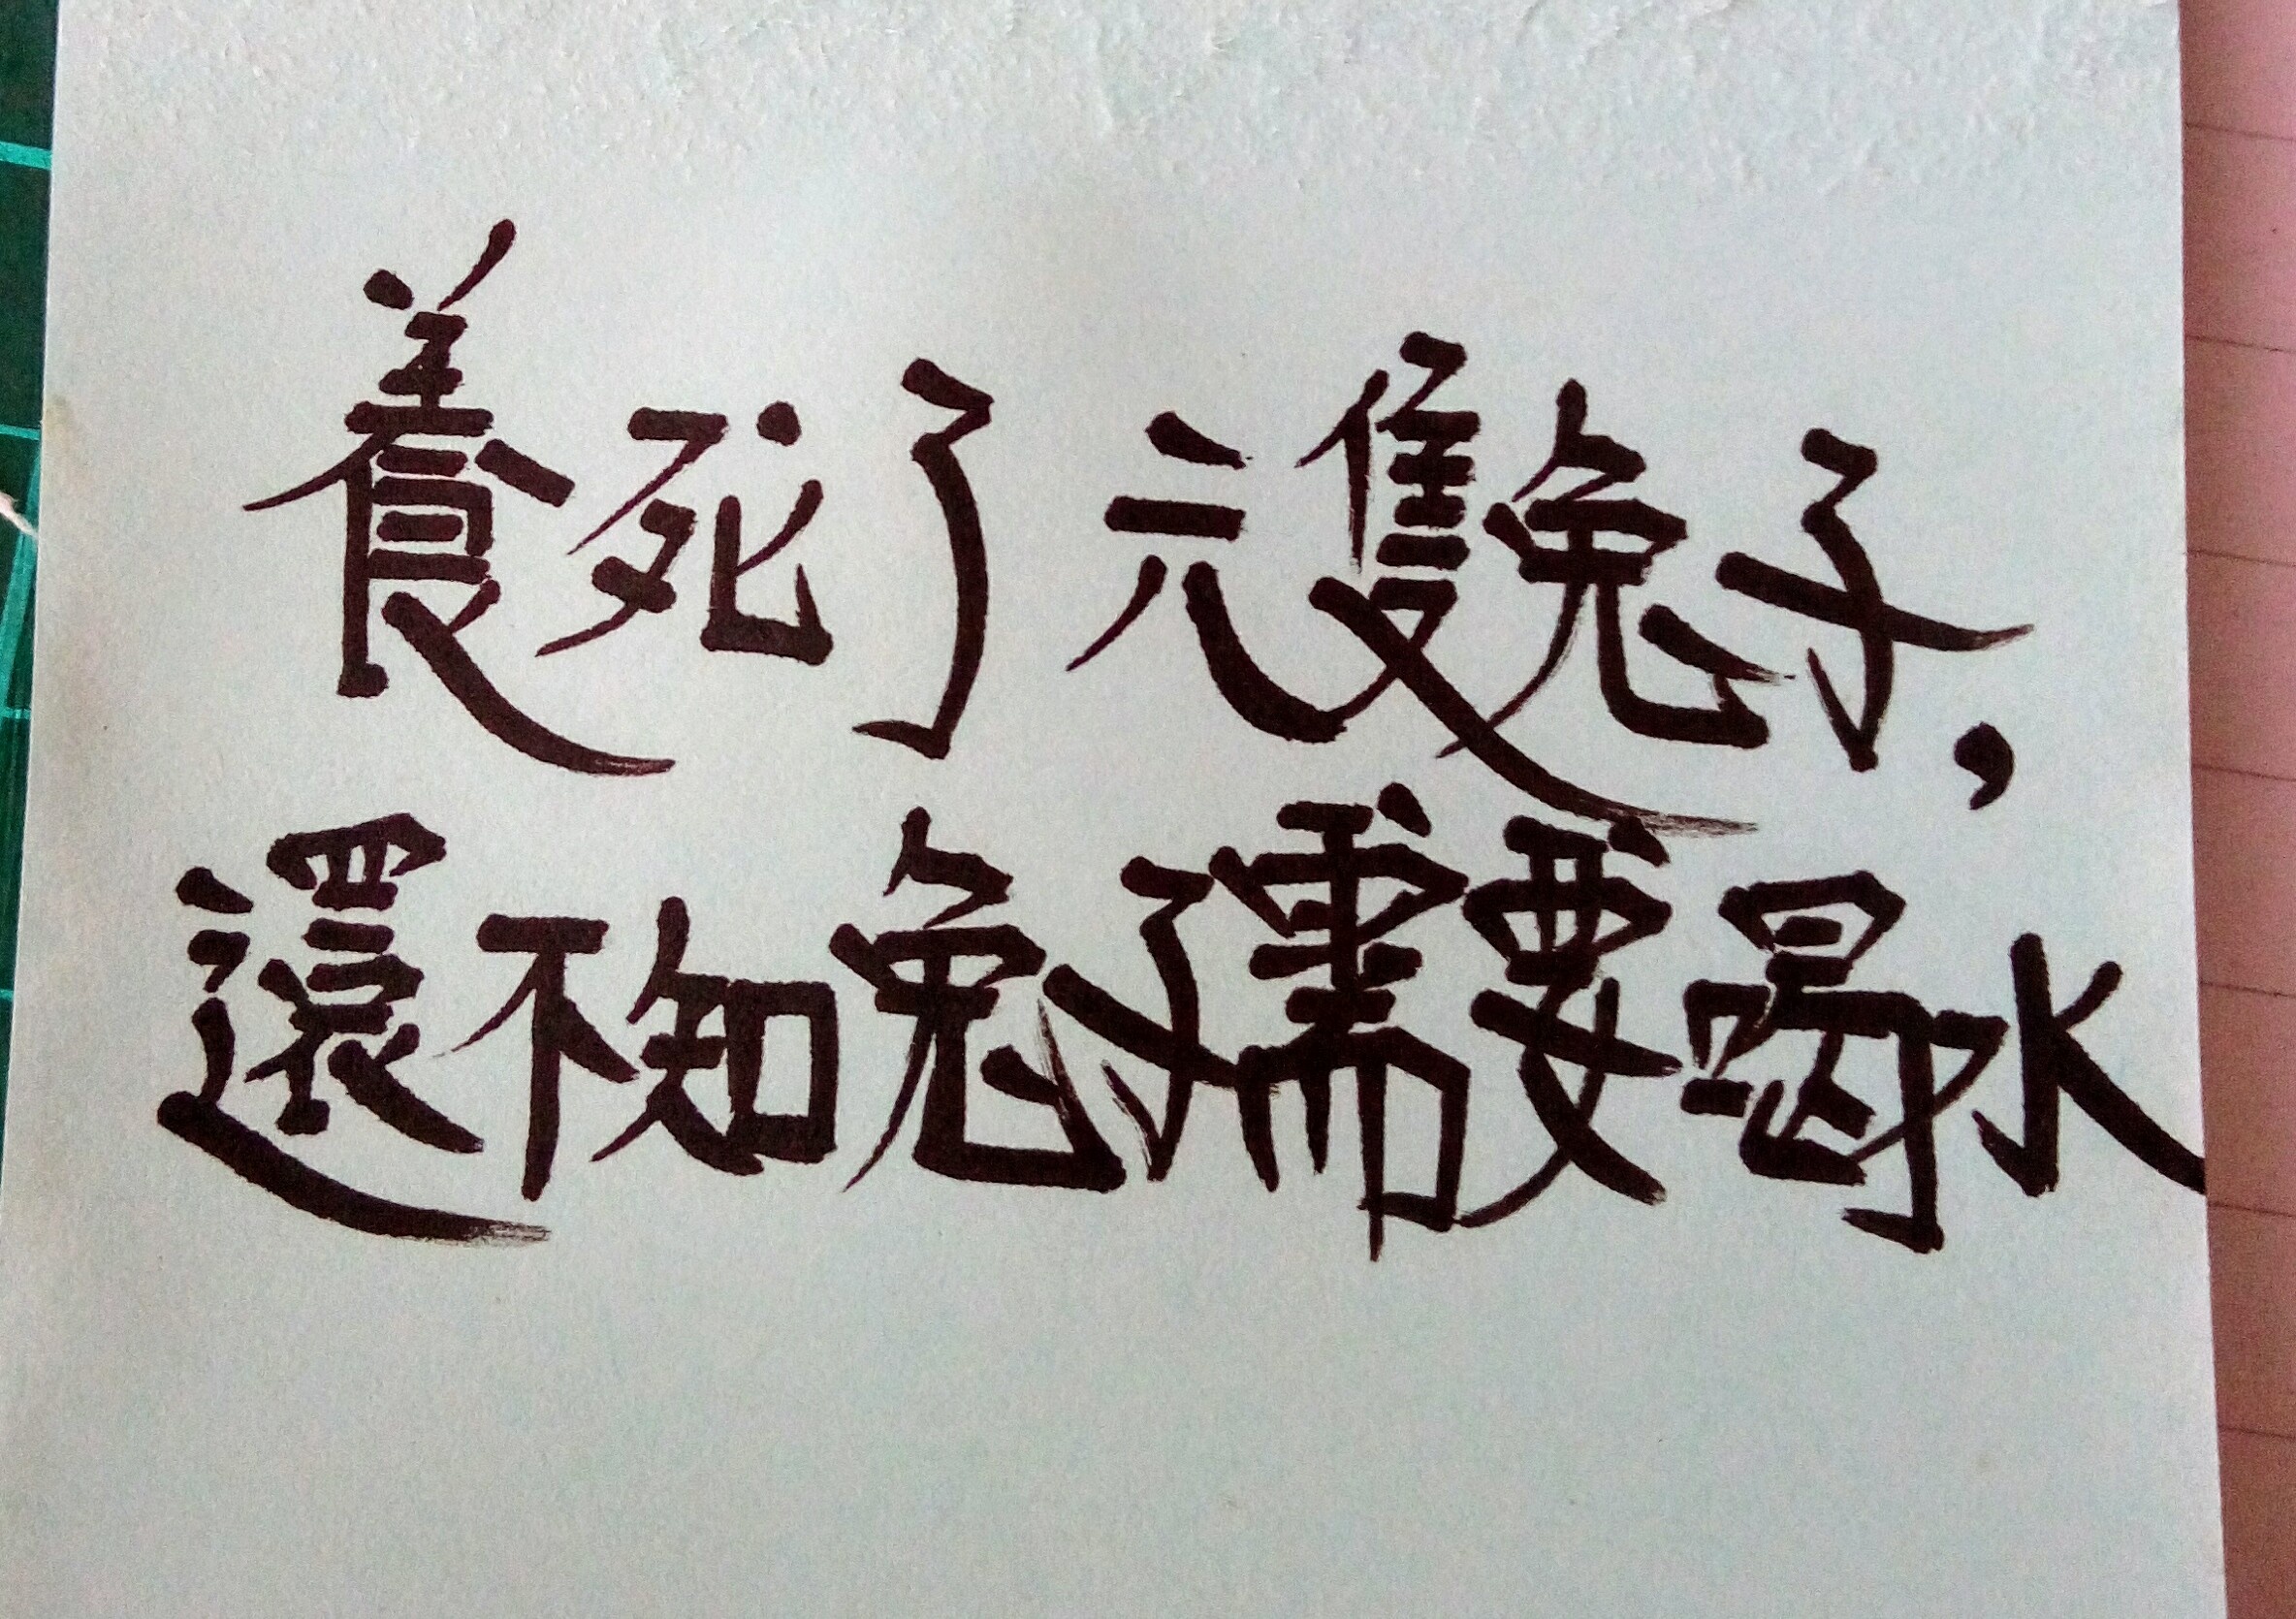 養死了六隻兔子,
還不知兔子需要喝水